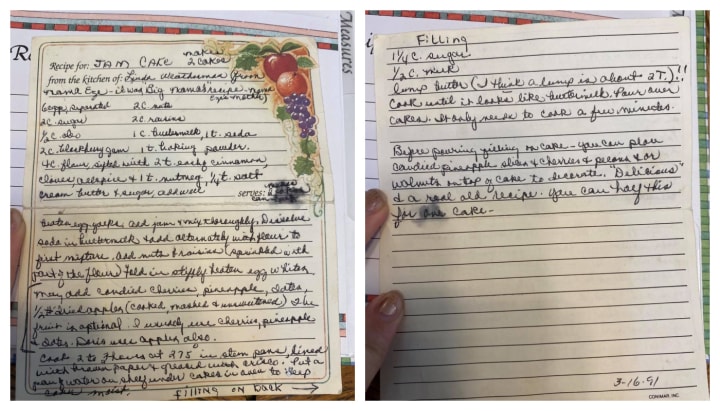 Measures
Recipe for: JAM CAKE makes 2 cakes
from the kitchen of: Linda Weatherman (from
Mama Eye - it was Big Mama's recipe - Mama
Eye's mother)
6 egg, separated 2 C. nuts
2 C. sugar 2 C. raisins
1 C. buttermilk, 1 t. soda
2 C. blackberry jam 1 t. baking powder.
4 C. flour, sifted with 2 t. each of cinnamon,
cloves, allspice & 1 t. nutmeg, 1/4 t. salt
Cream butter & sugar, add well
serves:
beaten egg yolks. Add jam & mix thoroughly. Dissolve
soda in buttermilk & add alternately with flour to
first mixture. Add nuts & raisins (sprinkled with
part of the flour) Fold in stiffly beaten egg whites
May add candied cherries, pineapple, dates,
1/2 # dried apples (cooked, mashed & unsweetened) The
fruit is optional. I usually use cherries, pineapple
& dates. Doris uses apples also.
Cook 2 to 3 hours at 275° in stem pans, lined
with brown paper & greased with crisco. Put a
pan of water on shelf under cakes in oven to keep
cake moist.
FILLING ON BACK →
Filling
1 1/4 C. sugar
1/2 C. milk
lump butter (I think a lump is about 2 T.)!!
Cook until it looks like buttermilk. Pour over
cakes. It only needs to cook a few minutes.
Before pouring filling on cake - you can place
candied pineapple slices & cherries & pecans &/or
walnuts on top of cake to decorate. "Delicious"
& a real old recipe. You can half this
for one cake.
3-16-91
CONIMAR, INC.